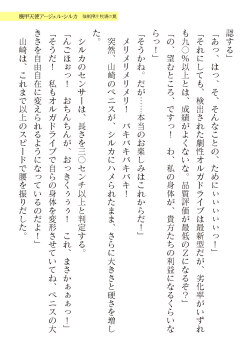 機甲天使アージェル・シルカ
認する」
「あっ、はっ、そ、そんなことの、ためにぃぃぃぃっ！」
「それにしても、検出された劇性オルガドライブは最新型だが、劣化率がいずれ
も九〇％以上とは、成績がよくないな。品質評価が最低のＺになるぞ」
「の、望むところ、ですっ！　わ、私の身体が、貴方たちの利益になるくらいな
らっ！」
「そうかね。だが……本当のお楽しみはこれからだ！」
メリメリメリメリー！　バキバキバキバキ！
突然、山崎のペニスが、シルカにハメられたまま、さらに大きさと硬さを増し
シルカのセンサーは、長さを三〇センチ以上と判定する。
「んごほおっ！　おっきいいっ！　これ、まさかぁぁぁっ！」
「そうだ！　私もオルガドライブで自らの身体を変形させていてね、ペニスの大
きさを自由自在に変えられるようになっているのだよ！」
山崎は、これまで以上のスピードで腰を振りだした。